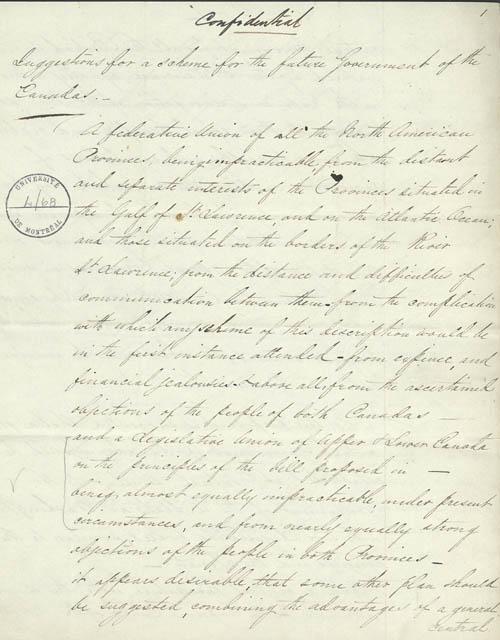 Confidential
1
Suggestions for a scheme for the future Government of the
Canadas. —
A federative Union of all the North American
Provinces, being impracticable, from the distinct
and separate interests of the Provinces situated in
the Gulf of St Lawrence, and on the Atlantic Ocean;
and those situated on the borders of the River
St Lawrence; from the distance and difficulties of
communication between them – from the complication
with which any scheme of this description would be
in the first instance attended – from expence, and
financial jealousies & above all, from the ascertained
objections of the people of both Canadas —
and a Legislative Union of Upper & Lower Canada
on the principles of the bill proposed in —
being, almost equally impracticable, under present
circumstances, and from nearly equally strong
objections of the people in both Provinces –
it appears desirable, that some other plan should
be suggested, combining the advantages of a general
central
UNIVERSITÉ
4/68
DE MONTRÉAL